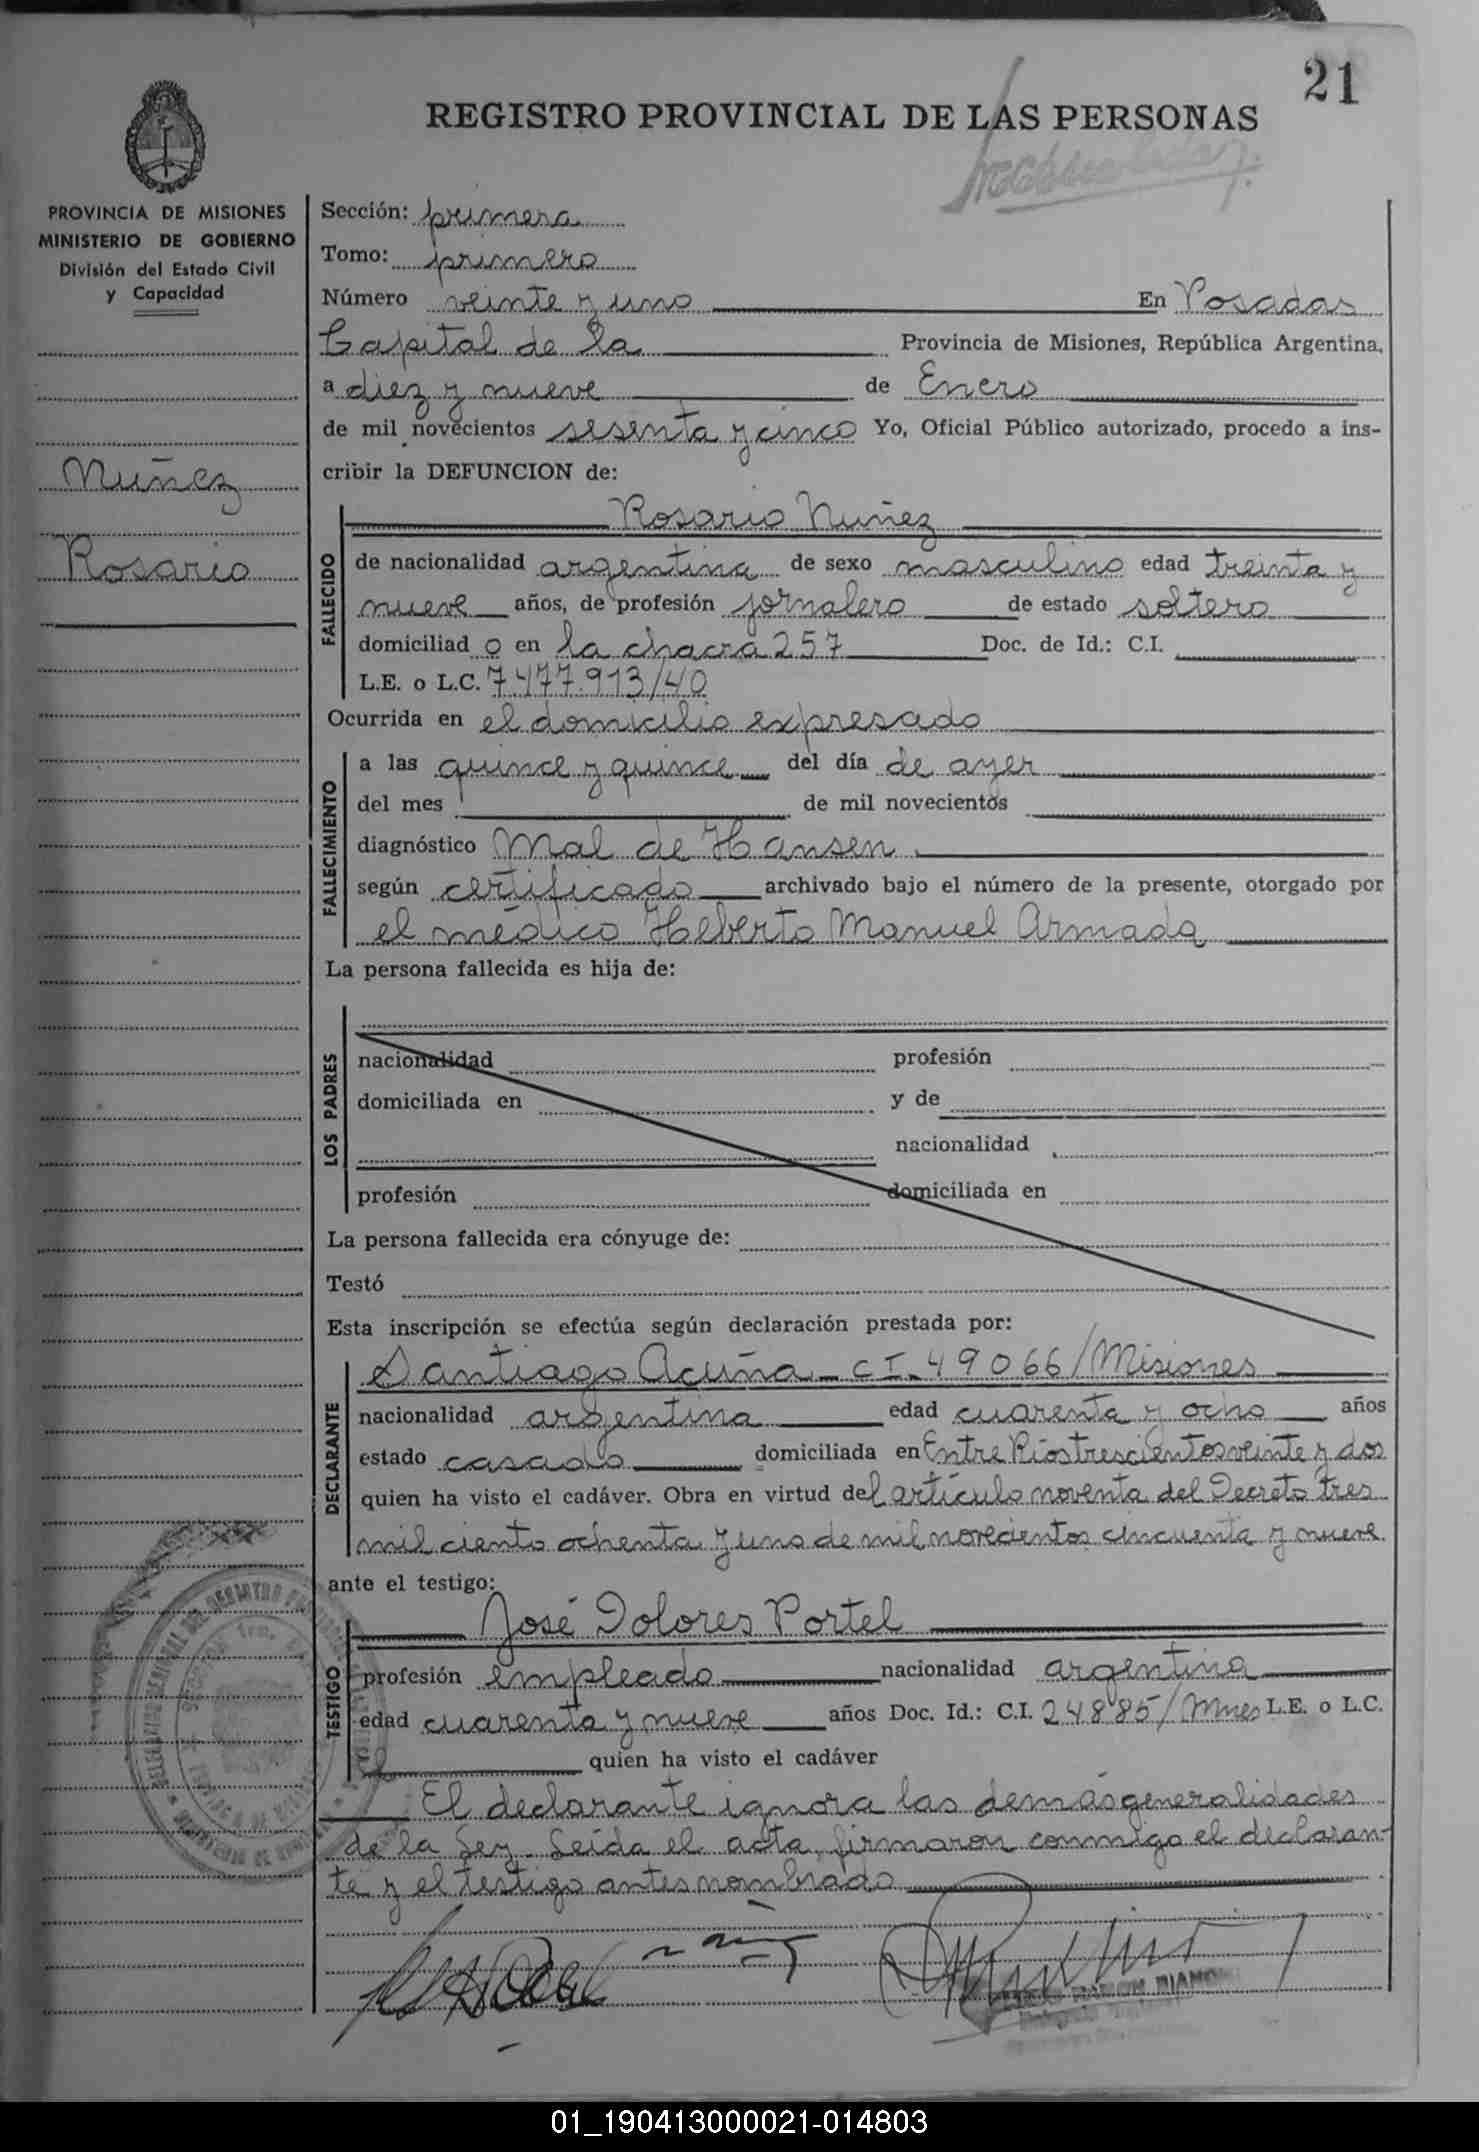 21
REGISTRO PROVINCIAL DE LAS PERSONAS
PROVINCIA DE MISIONES
MINISTERIO DE GOBIERNO
División del Estado Civil
y Capacidad
Nuñez
Rosario
Sección: primera
Tomo: primero
Número veinte y uno En Posadas
Capital de la Provincia de Misiones, República Argentina,
a diez y nueve de Enero
de mil novecientos sesenta y cinco Yo, Oficial Público autorizado, procedo a ins-
cribir la DEFUNCION de:
FALLECIDO
Rosario Nuñez
de nacionalidad argentina de sexo masculino edad treinta y
nueve años, de profesión jornalero de estado soltero
domiciliad o en la chacra 257 Doc. de Id.: C.I.
L.E. o L.C. 7.477.913/40
Ocurrida en el domicilio expresado
FALLECIMIENTO
a las quince y quince del día de ayer
del mes de mil novecientos
diagnóstico Mal de Hansen.
según certificado archivado bajo el número de la presente, otorgado por
el médico Heberto Manuel Armada
La persona fallecida es hija de:
LOS PADRES
nacionalidad profesión
domiciliada en y de
nacionalidad
profesión domiciliada en
La persona fallecida era cónyuge de:
Testó
Esta inscripción se efectúa según declaración prestada por:
DECLARANTE
Santiago Acuña - CI. 49066/Misiones
nacionalidad argentina edad cuarenta y ocho años
estado casado domiciliada en Entre Rios trescientos veinte y dos
quien ha visto el cadáver. Obra en virtud del artículo noventa del Decreto tres
mil ciento ochenta y uno de mil novecientos cincuenta y nueve
ante el testigo:
TESTIGO
José Dolores Portel
profesión empleado nacionalidad argentina
edad cuarenta y nueve años Doc. Id.: C.I. 24885/Mnes L.E. o L.C.
quien ha visto el cadáver
El declarante ignora las demás generalidades
de la Ley. Leída el acta, firmaron conmigo el declaran-
te y el testigo antes nombrado
RAMON
01_190413000021-014803